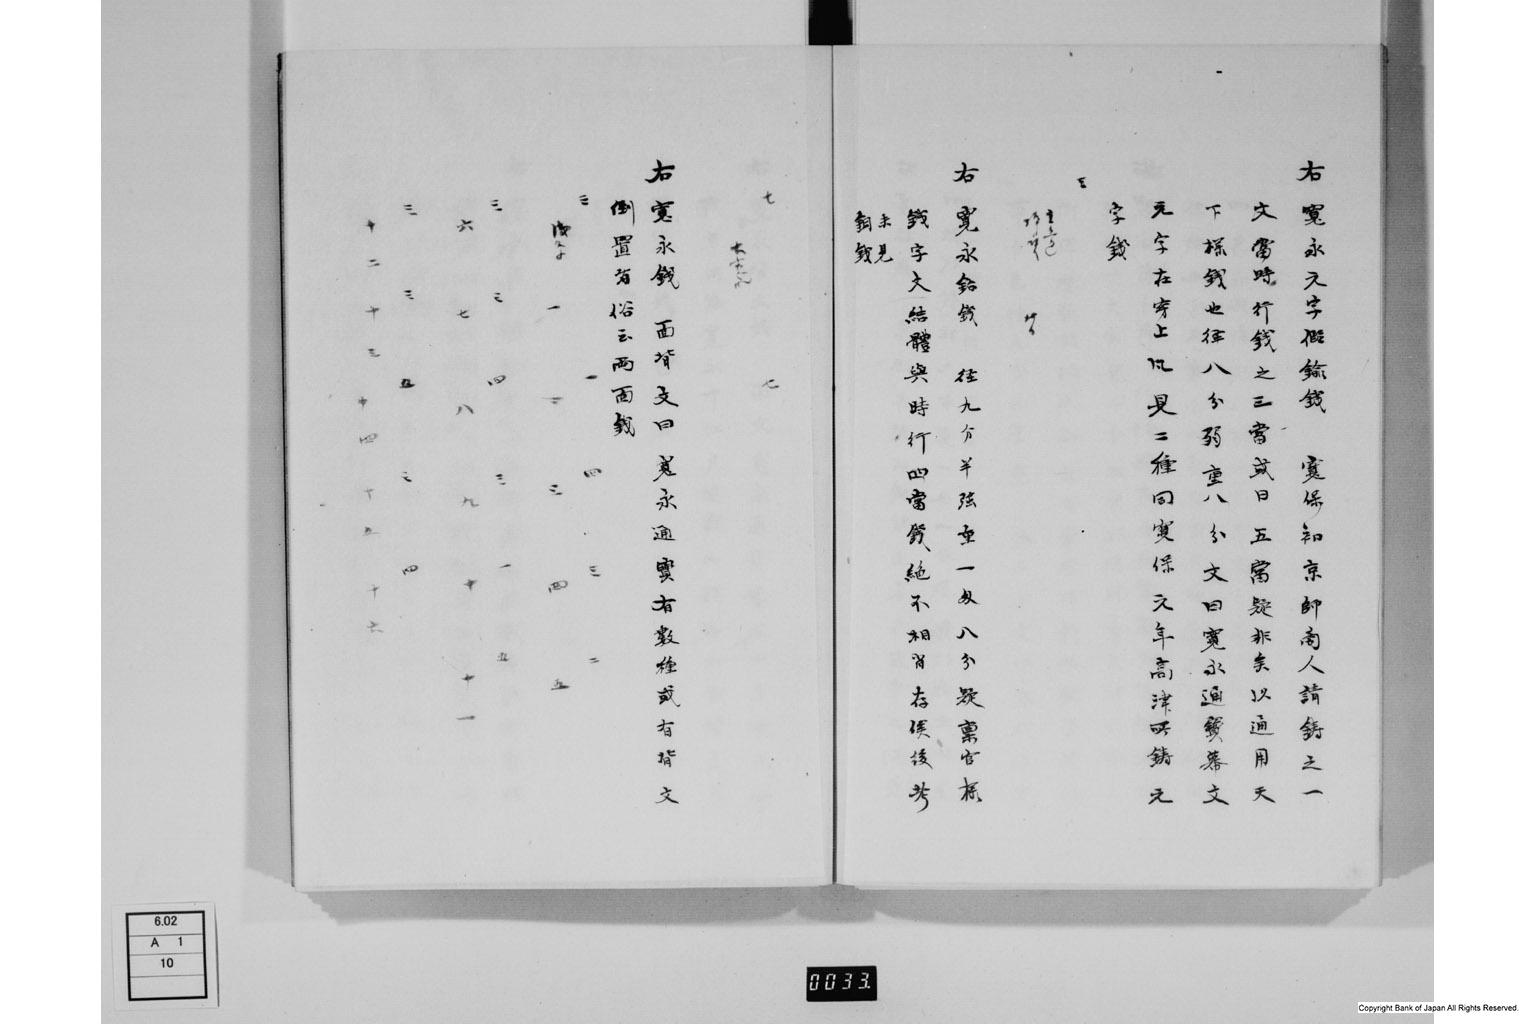 右寛永元字樣鍮錢　寛保初京師商人請鋳之一
文當時行錢之三當或曰五當疑非矣以通用天
下樣錢也径八分弱重八分文曰寛永通寳幕文
元字在穿上凡見二種同寛保元年高津所鋳元
字錢
三
右寛永鉛錢　径九分半弦重一匁八分疑稟官樣
錢字文結體與時行四當錢絶不相肖存俟後考
未見
銅錢
七
七
右寛永錢面背文曰寛永通寳有數種或有背文
倒置者俗云両面錢
三　一　四　三　二
一　二　三　四　五
三　三　四　三　一　五
六　七　八　九　十　十一
三　三　五　三　四
十二　十三　十四　十五　十六
6.02
A 1
10
0033.
Copyright Bank of Japan All Rights Reserved.